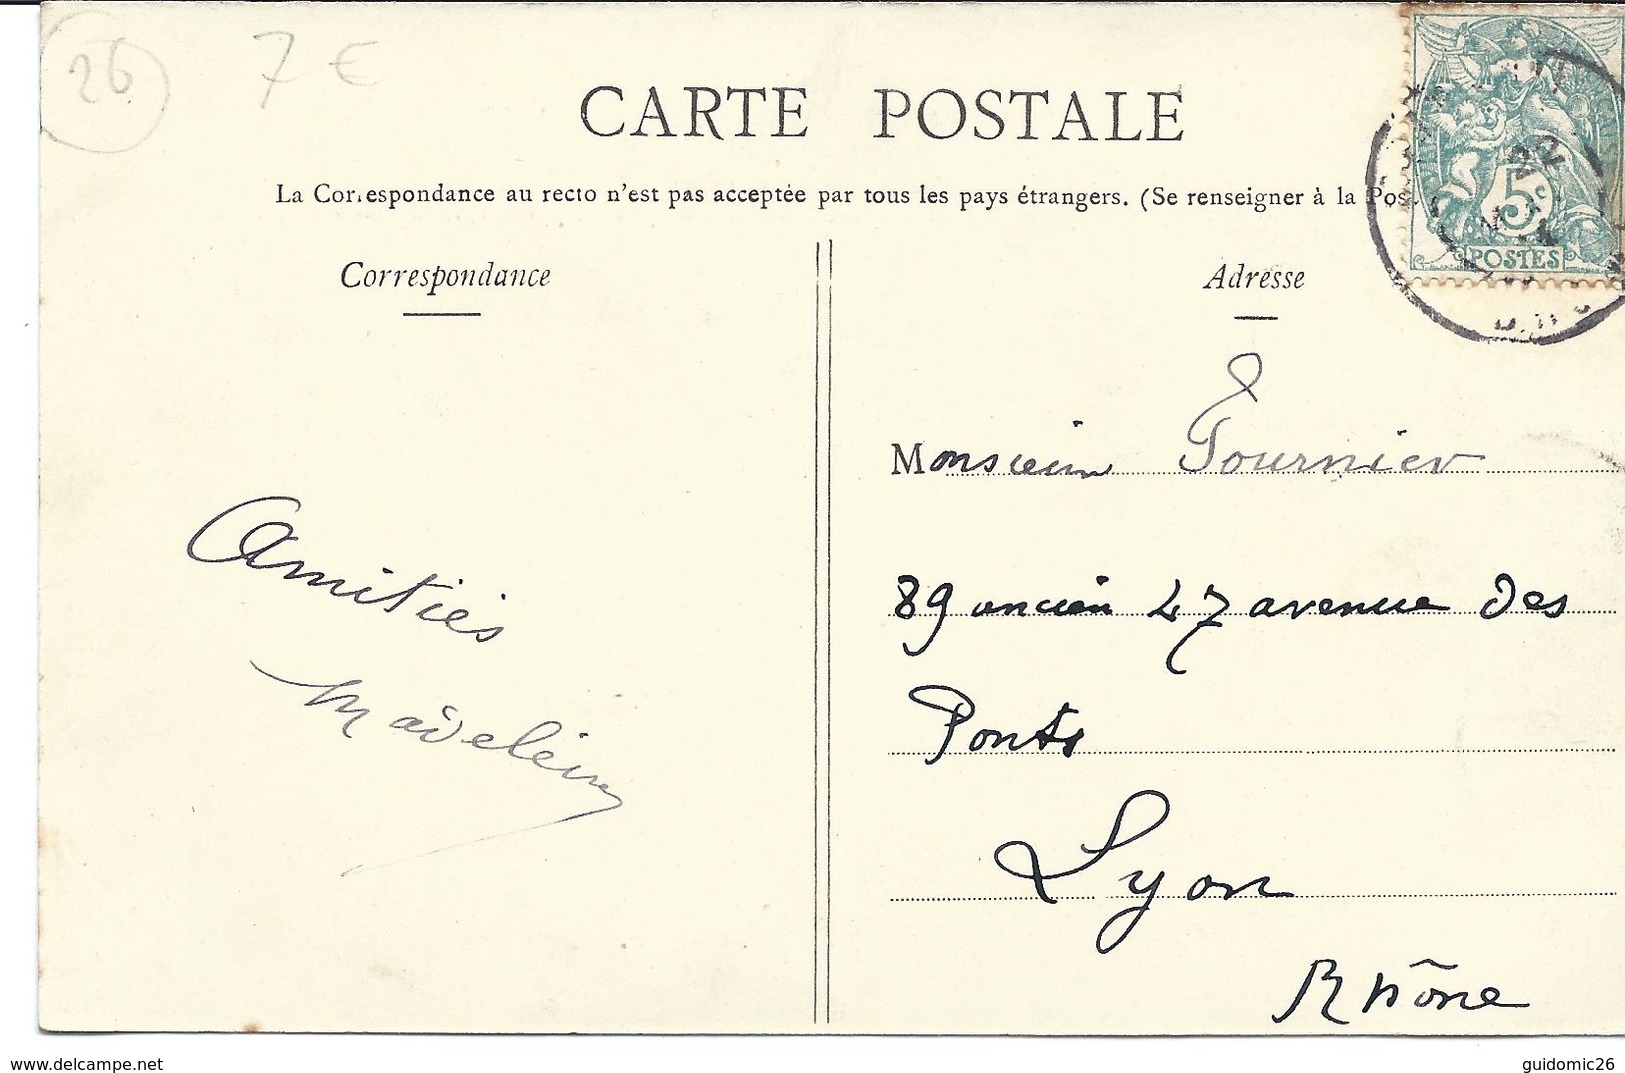 26
7 €
CARTE POSTALE
La Correspondance au recto n'est pas acceptée par tous les pays étrangers. (Se renseigner à la Pos
Correspondance
Adresse
5c
POSTES
22
Monsieur Fournier
89 ancien 47 avenue des
Ponts
Lyon
Rhône
Amitiés
Madeleine
www.delcampe.net
guidomic26